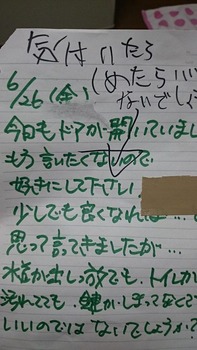 気がついたら
しめたらいい
ないでしょ
6/26(金)
今日もドアが開いていまし
もう言いたくないので
好きにして下さい
少しでも良くなれば…
思って言ってきましたが…
水が出しっ放でも、トイレが
汚れてても、鍵がしまってなくても
いいのではないでしょうか?